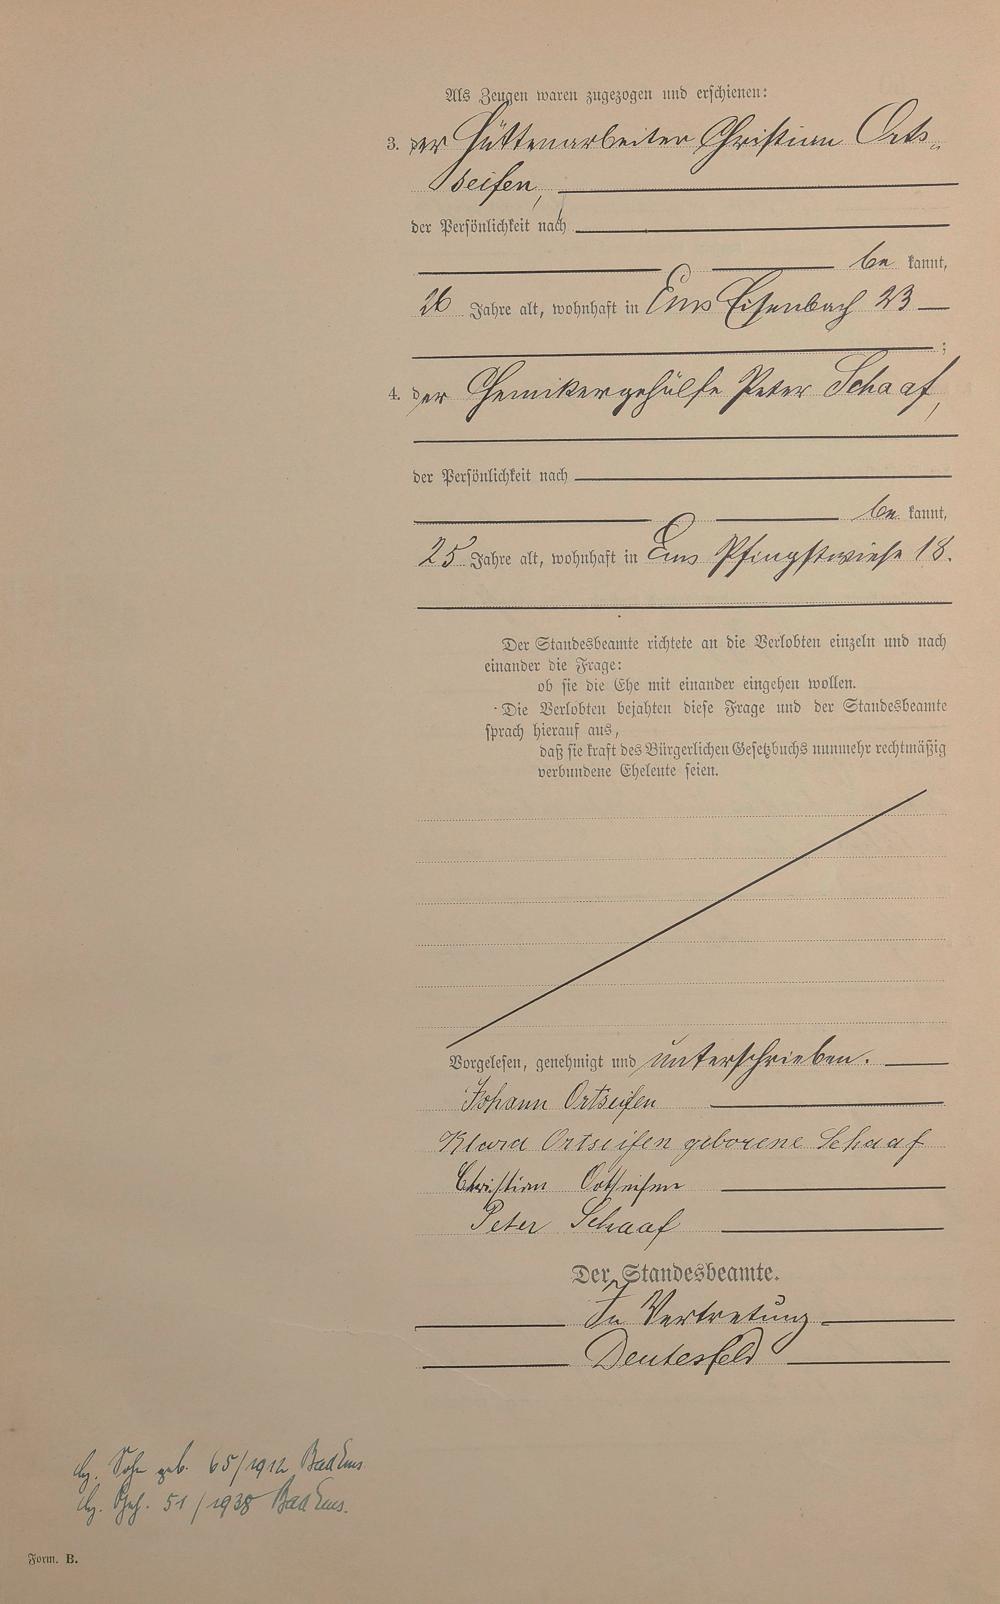 Als Zeugen waren zugezogen und erschienen:
3. der Hüttenarbeiter Christian Orts-
seifen,
der Persönlichkeit nach
be kannt,
26 Jahre alt, wohnhaft in Ems Eisenbach 23
;
4. der Chemikergehülfe Peter Schaaf,
der Persönlichkeit nach
be kannt,
25 Jahre alt, wohnhaft in Ems Pfingstwiese 18.
Der Standesbeamte richtete an die Verlobten einzeln und nach
einander die Frage:
ob sie die Ehe mit einander eingehen wollen.
Die Verlobten bejahten diese Frage und der Standesbeamte
sprach hierauf aus,
daß sie kraft des Bürgerlichen Gesetzbuchs nunmehr rechtmäßig
verbundene Eheleute seien.
Vorgelesen, genehmigt und unterschrieben.
Johann Ortseifen
Klara Ortseifen geborene Schaaf
Christian Ortseifen
Peter Schaaf
Der Standesbeamte.
In Vertretung
Deutesfeld
Sohn geb. 65/1912 Bad Ems.
51/1938 Bad Ems.
Form. B.